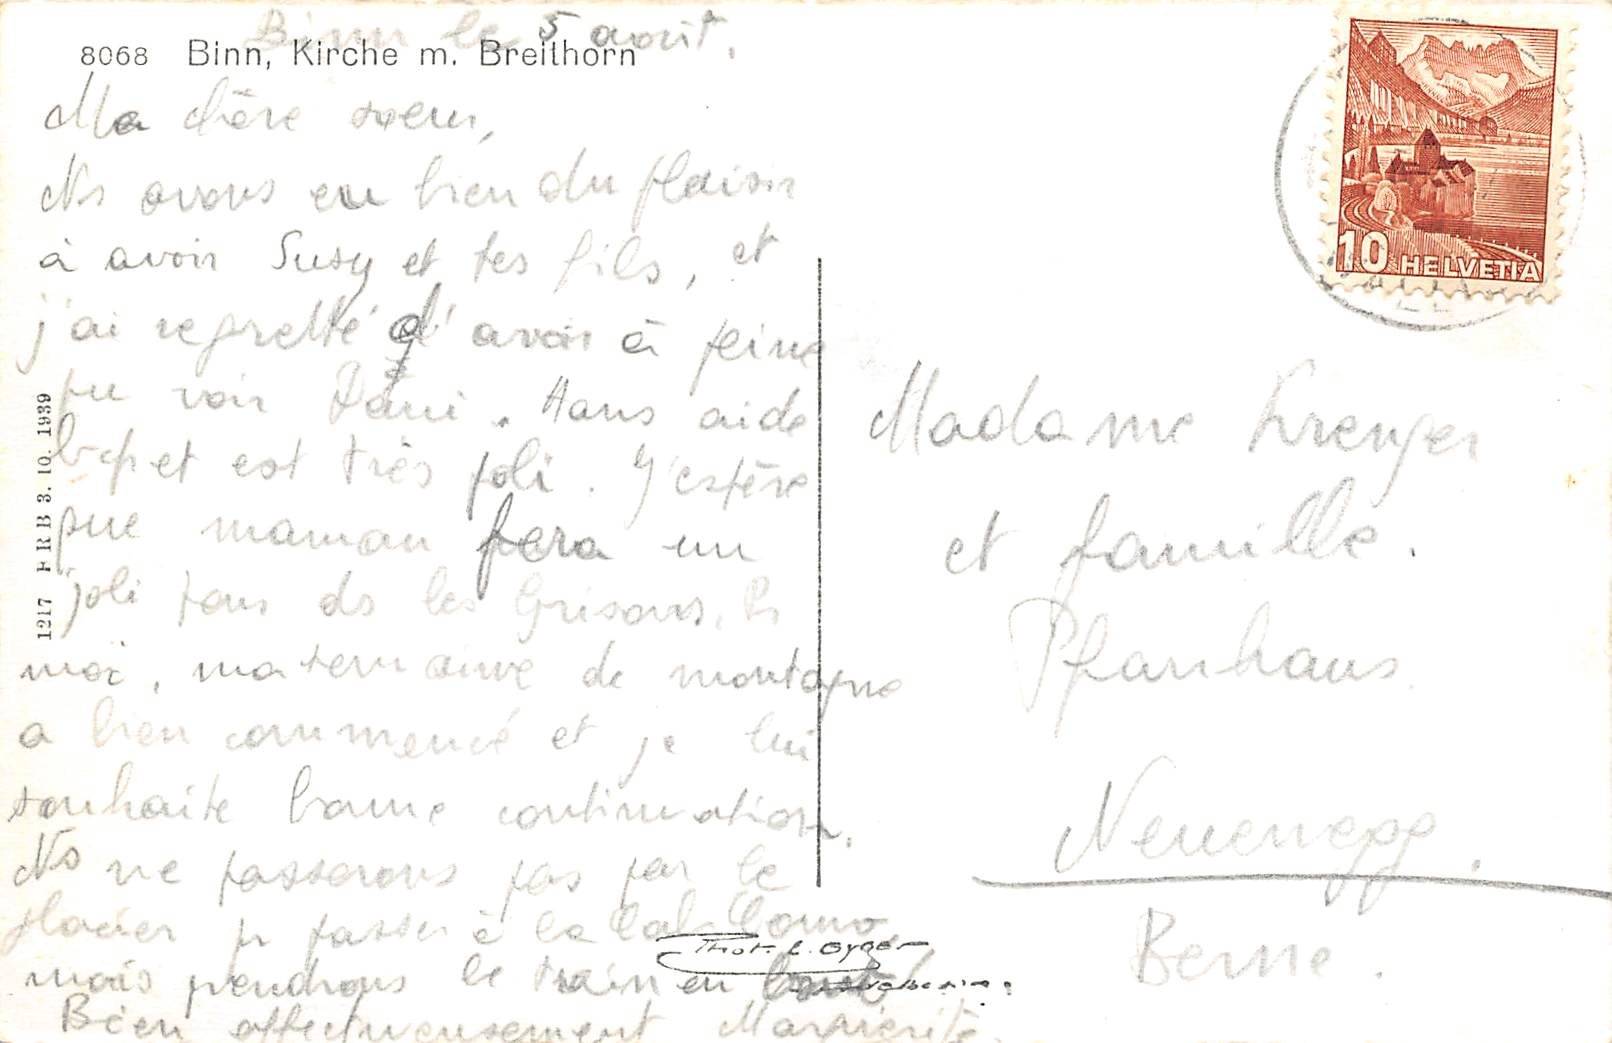 Binn le 5 août.
8068 Binn, Kirche m. Breithorn
Ma chère soeur,
Ns avons eu bien du plaisir
à avoir Susy et tes fils, et
j'ai regretté d'avoir à peine
pu voir Dani. Hans aide
et est très joli. J'espère
que maman fera un
joli tour ds les Grisons. Pr
moi, ma semaine de montagne
a bien commencé et je lui
souhaite bonne continuation.
Ns ne passerons pas par le
glacier pr passer à la
mais prendrons le train en
Bien affectueusement Marguerite.
1217 F R B 3. 10. 1939
Phot. E. Gyger
Adelboden
10 HELVETIA
Madame Krenger
et famille.
Pfarrhaus
Neuenegg.
Berne.